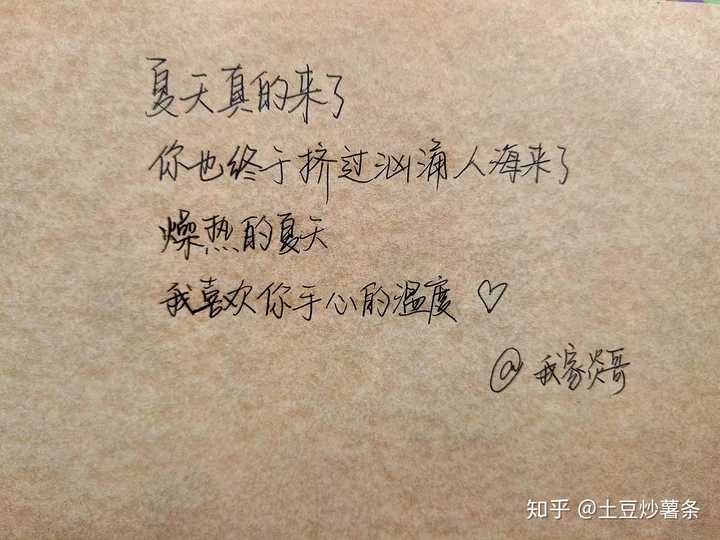 夏天真的来了
你也终于挤过汹涌人海来了
燥热的夏天
我喜欢你手心的温度 ♡
@我家炎哥
知乎 @土豆炒薯条